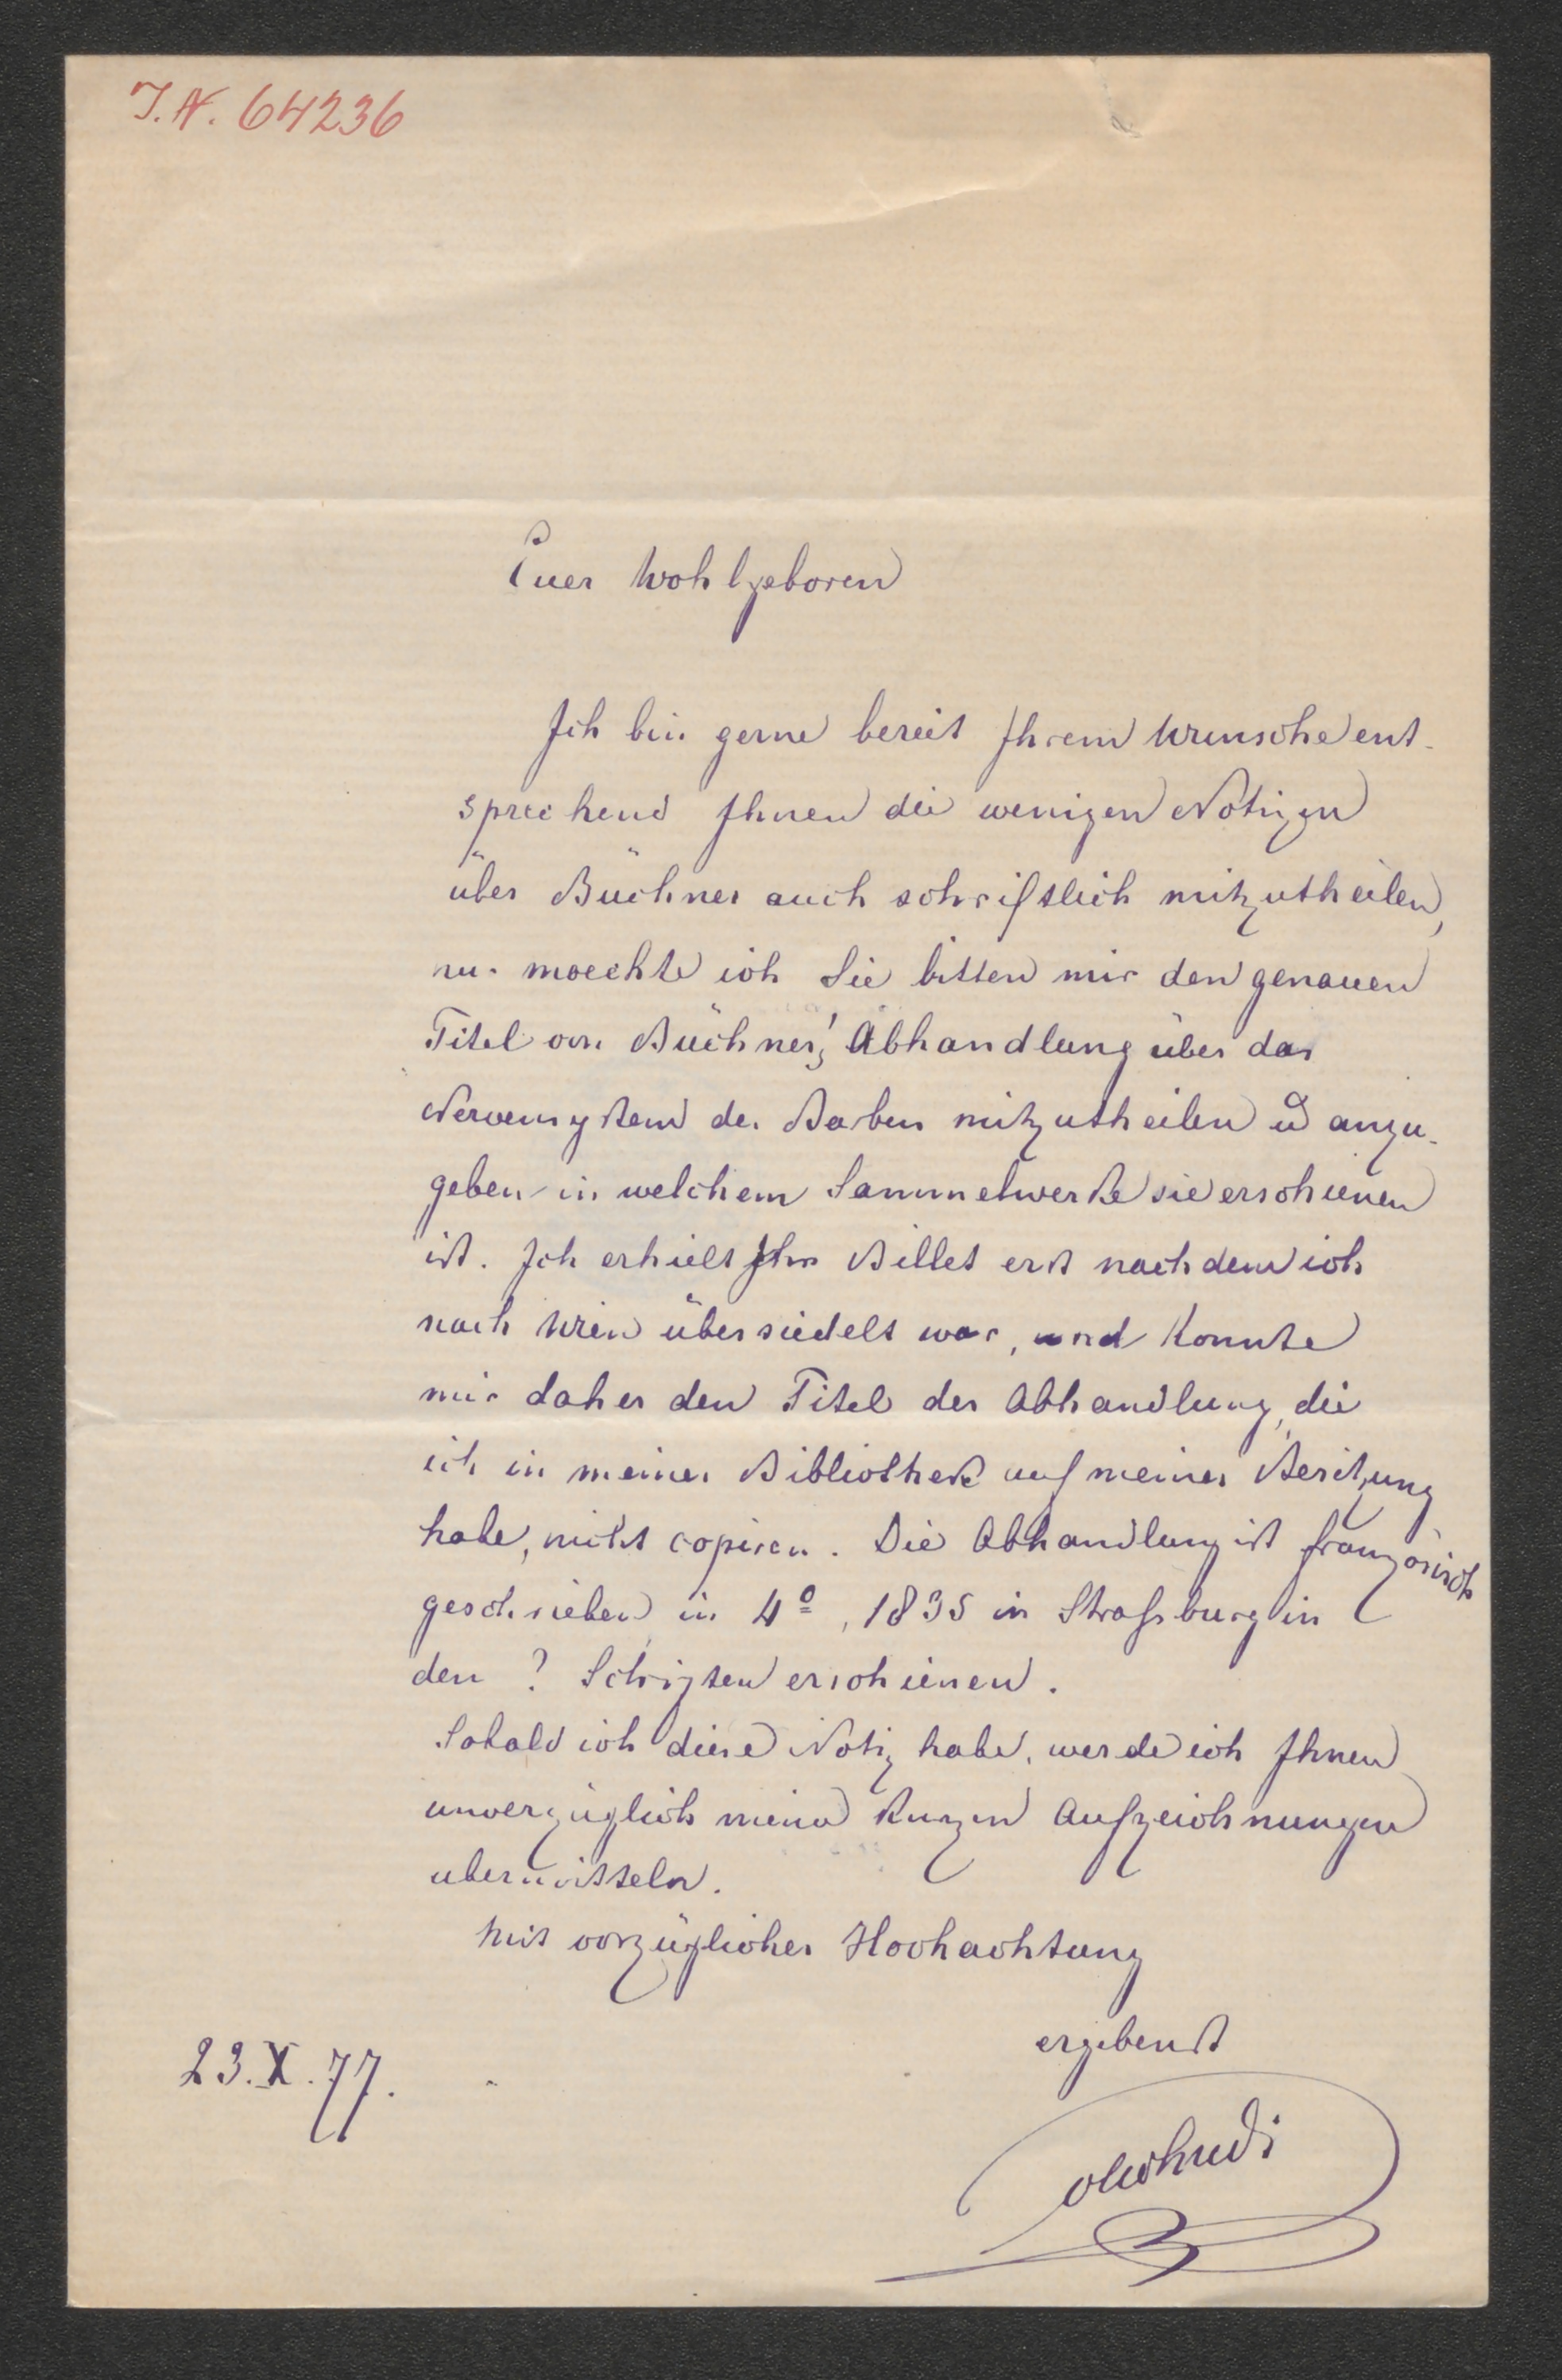 I.N. 64236
Euer Wohlgeboren
Ich bin gerne bereit Ihrem Wunsche ent-
sprechend Ihnen die wenigen Notizen
über Büchner auch schriftlich mitzutheilen,
nur moechte ich Sie bitten mir den genauen
Titel von Büchner's Abhandlung über das
Nervensystem der Barben mitzutheilen u anzu-
geben in welchem Sammelwerke sie erschienen
ist. Ich erhielt Ihr Billet erst nachdem ich
nach Wien übersiedelt war, und konnte
mir daher den Titel der Abhandlung, die
ich in meiner Bibliothek auf meiner Besitzung
habe, nicht copiren. Die Abhandlung ist französisch
geschrieben in 4º, 1835 in Straßburg in
den ? Schriften erschienen.
Sobald ich diese Notiz habe, werde ich Ihnen
unverzüglich meine kurzen Aufzeichnungen
übermitteln.
Mit vorzüglicher Hochachtung
ergebenst
23.X.77.